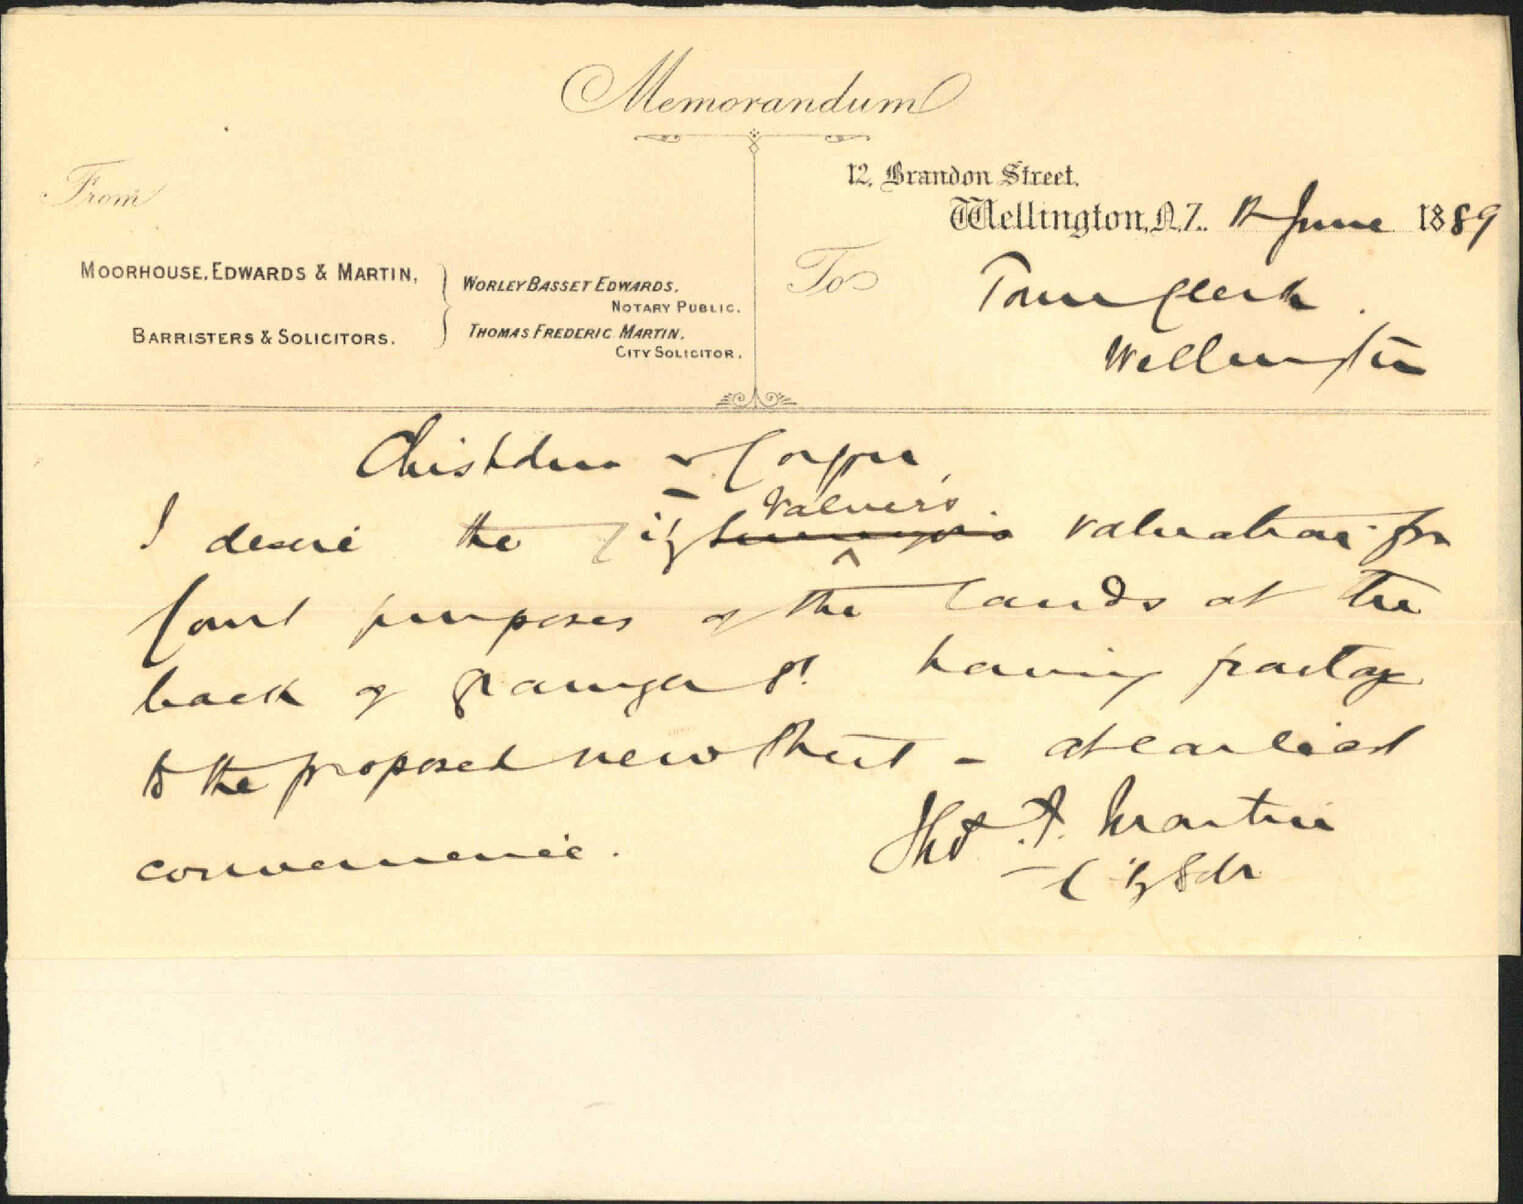 Memorandum
From
12, Brandon Street,
Wellington, N.Z. 12 June 1889
MOORHOUSE, EDWARDS & MARTIN,
BARRISTERS & SOLICITORS.
WORLEY BASSET EDWARDS,
NOTARY PUBLIC.
THOMAS FREDERIC MARTIN,
CITY SOLICITOR.
To
Town Clerk
Wellington
v Corpn
Valuer's
I desire the City valuation for
Court purposes of the lands at the
back of Grainger St. having frontage
to the proposed new Street - at earliest
convenience.
Thos. F. Martin
City Solr